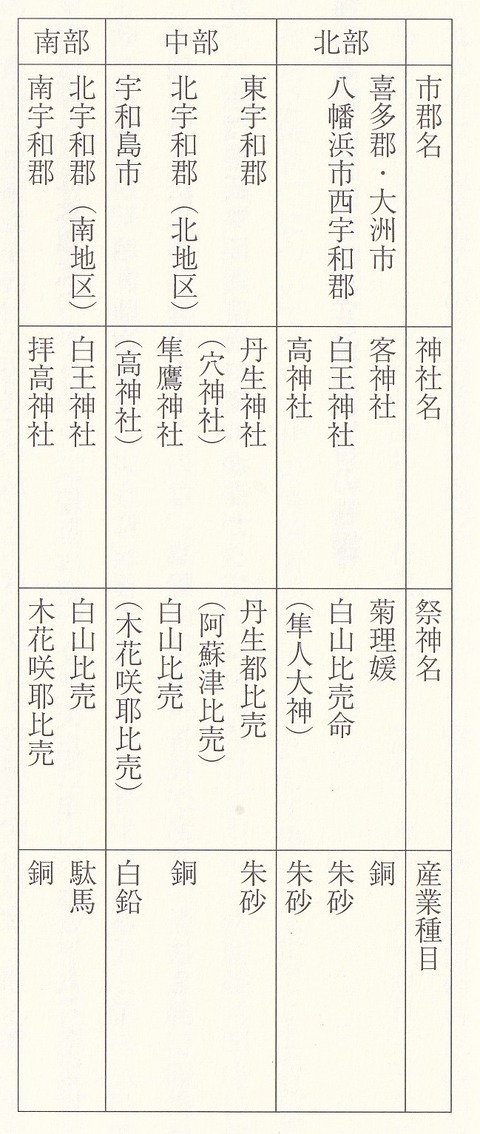 市郡名
神社名
祭神名
産業種目
北部
喜多郡・大洲市
客神社
菊理媛
銅
八幡浜市西宇和郡
白王神社
白山比売命
朱砂
高神社
（隼人大神）
朱砂
中部
東宇和郡
丹生神社
丹生都比売
朱砂
（穴神社）
（阿蘇津比売）
北宇和郡（北地区）
隼鷹神社
白山比売
銅
宇和島市
（高神社）
（木花咲耶比売）
白鉛
南部
北宇和郡（南地区）
白王神社
白山比売
駄馬
南宇和郡
拝高神社
木花咲耶比売
銅